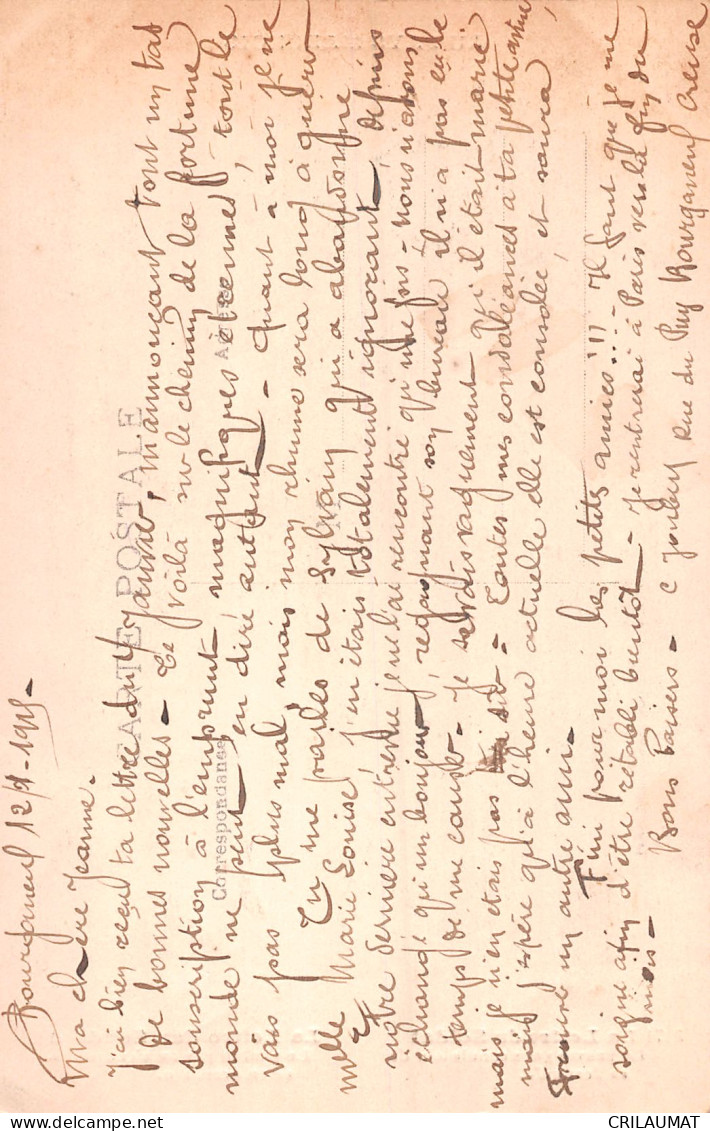 Bourganeuf 12/1-1915-
Ma chère Jeanne.
J'ai bien reçu ta lettre du 7 Janvier, m'annonçant tout un tas
de bonnes nouvelles - Te voilà sur le chemin de la fortune
souscription à l'emprunt magnifiques étrennes, tout le
monde ne peut en dire autant - Quant à moi je ne
vais pas plus mal, mais mon rhume sera long à guérir
Tu me parles de Sylvain qui a abandonné
Melle Marie Louise j'en étais totalement ignorant, depuis
notre dernière entrevue je ne l'ai rencontré qu'une fois - Nous n'avons
échangé qu'un bonjour, regagnant son bureau il n'a pas eu le
temps de me causer - Je savais vaguement qu'il était marié
mais je n'en étais pas sûr - Toutes mes condoléances à ta petite amie
mais j'espère qu'à l'heure actuelle elle est consolée, et saura
trouver un autre ami -
Fini pour moi les petites amies !!! Il faut que je me
soigne afin d'être rétabli bientôt - Je rentrerai à Paris vers la fin du
mois -
Bons Baisers - Rue du Puy Bourganeuf Creuse
CARTE POSTALE
Correspondance
Adresse
CRILAUMAT